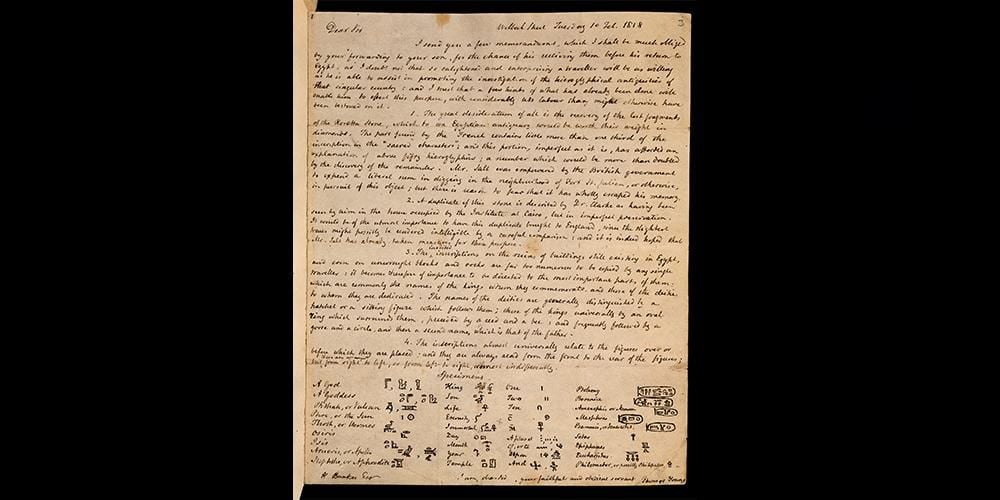 Dear Sir
Welbeck Street Tuesday 10 Feb. 1818
3
I send you a few memorandums, which I shall be much obliged
by your forwarding to your son, for the chance of his receiving them before his return to
Egypt; as I doubt not that so enlightened and enterprising a traveller will be as willing
as he is able to assist in promoting the investigation of the hieroglyphical antiquities of
that singular country: and I trust that a few hints of what has already been done will
enable him to effect this purpose, with considerably less labour than might otherwise have
been bestowed on it.
1. The great desideratum of all is the recovery of the lost fragments
of the Rosetta Stone, which to an Egyptian antiquary would be worth their weight in
diamonds. The part found by the French contains little more than one third of the
inscription in the "sacred characters"; and this portion, imperfect as it is, has afforded an
explanation of above fifty hieroglyphics; a number which would be more than doubled
by the discovery of the remainder. Mr. Salt was empowered by the British government
to expend a liberal sum in digging in the neighbourhood of Fort St. Julien, or otherwise,
in pursuit of this object; but there is reason to fear that it has wholly escaped his memory.
2. A duplicate of this stone is described by Dr. Clarke as having been
seen by him in the house occupied by the Institute at Cairo, but in imperfect preservation.
It would be of the utmost importance to have this duplicate brought to England, since the slightest
traces might possibly be rendered intelligible by a careful comparison; and it is indeed hoped that
Mr. Salt has already taken measures for this purpose.
3. The inscriptions on the ruins of buildings still existing in Egypt,
and even on unwrought blocks and rocks are far too numerous to be copied by any single
traveller: it becomes therefore of importance to be directed to the most important parts of them:
which are commonly the names of the kings whom they commemorate and those of the deities
to whom they are dedicated. The names of the deities are generally distinguished by a
hatchet or a sitting figure which follows them; those of the kings universally by an oval
ring which surrounds them, preceded by a reed and a bee; and frequently followed by a
goose and a circle, and then a second name, which is that of the father.
4. The inscriptions almost universally relate to the figures over or
before which they are placed: and they are always read from the front to the rear of the figures;
but from right to left, or from left to right, indifferently.
Specimens
A God King One Ptolemy
A Goddess Son Two Berenice
Phthah, or Vulcan Life Ten
Phre, or the Sun Eternity Mesphres
Thoth, or Hermes Immortal
Osiris Day Sotor
Isis Month Epiphanes
Arueris, or Apollo Year Upon Eucharistus
Nephthe, or Aphrodite Temple And Philometor, or possibly Philopator
W Bankes Esqr
I am, dear Sir, your faithful and obedient servant Thomas Young